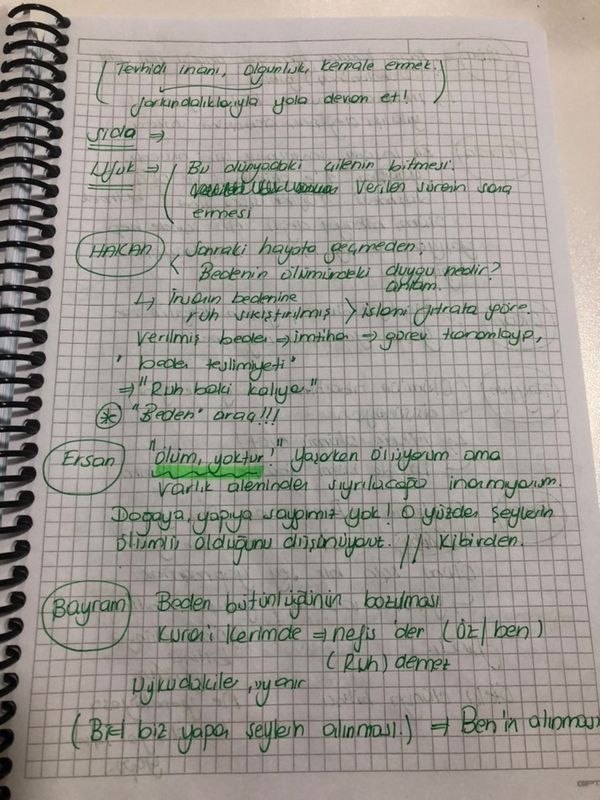 (Tevhidi inanı, olgunluk, kemale ermek.)
farkındalıklarıyla yola devam et!
Sıda ⇒
Ufuk ⇒ ( Bu dünyadaki çilenin bitmesi.
verilen sürenin sona
ermesi
HAKAN < Sonraki hayata geçmeden;
Bedenin ölümündeki duygu nedir?
anlam.
↳ İnsanın bedenine
ruh sıkıştırılmış > islami fıtrata göre.
verilmiş beden → imtihan → görev tamamlayıp,
"beden teslimiyeti"
⇒ "Ruh baki kalıyor"
* "Beden" araç!!!
Ersan "Ölüm, yoktur!" Yaşarken ölüyorum ama
varlık aleminden sıyrılacağıma inanmıyorum.
Doğaya, yapıya saygımız yok! O yüzden şeylerin
ölümlü olduğunu düşünüyoruz. // Kibirden.
Bayram Beden bütünlüğünün bozulması
Kuran'ı Kerimde ⇒ nefis der (Öz/ben)
(Ruh) demez
Uykudakiler, uyanır
(Bizi biz yapan şeylerin alınması.) ⇒ Ben'in alınması